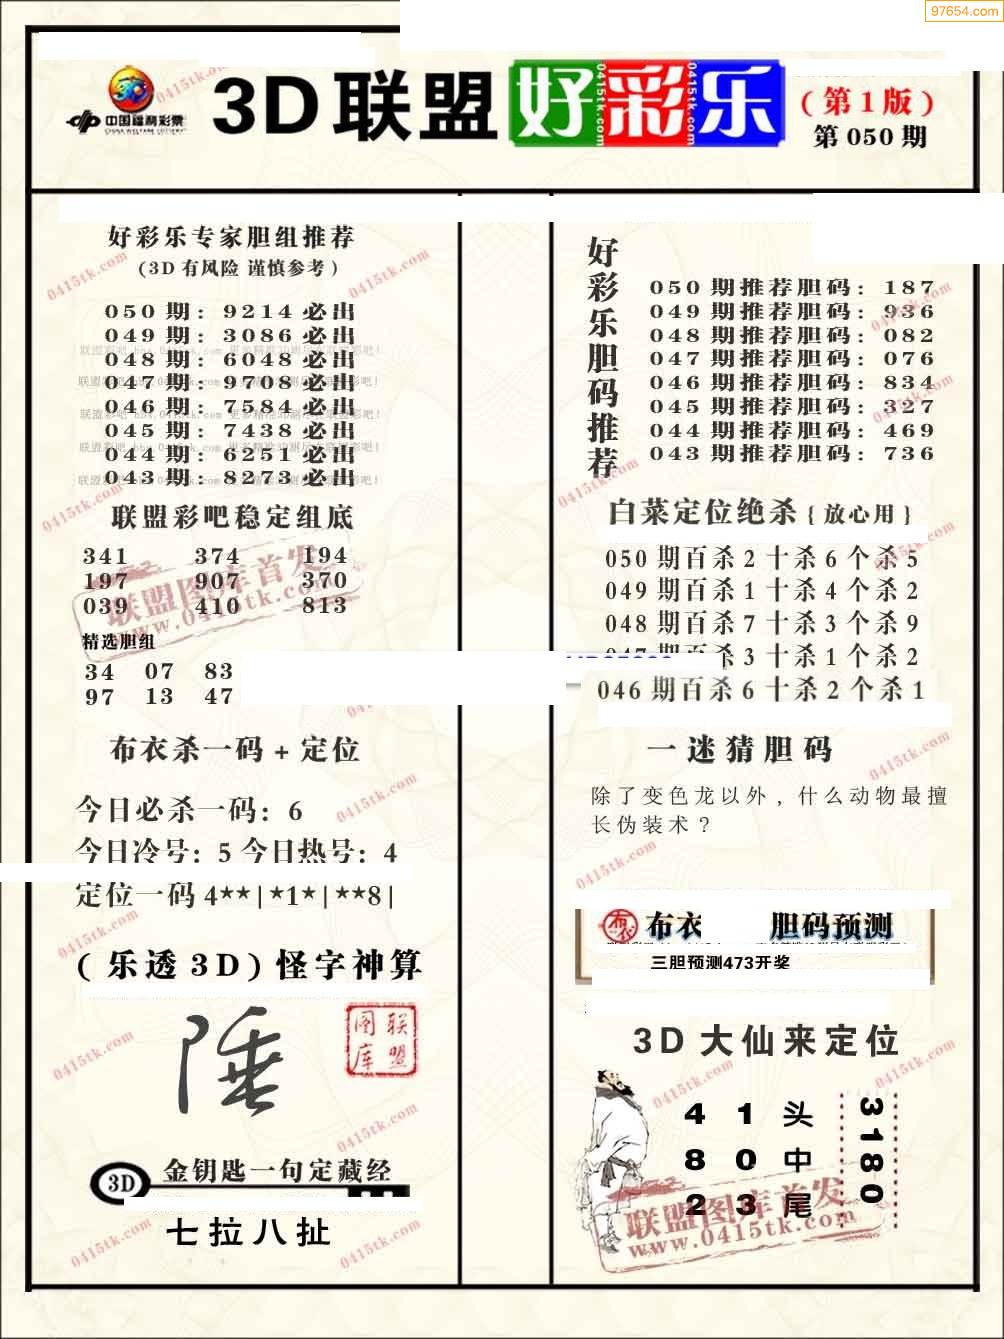 97654.com
中国福利彩票
CHINA WELFARE LOTTERY
3D联盟好彩乐
(第1版)
第050期
好彩乐专家胆组推荐
(3D有风险 谨慎参考)
050期: 9214必出
049期: 3086必出
048期: 6048必出
047期: 9708必出
046期: 7584必出
045期: 7438必出
044期: 6251必出
043期: 8273必出
联盟彩吧稳定组底
341 374 194
197 907 370
039 410 813
精选胆组
34 07 83
97 13 47
布衣杀一码+定位
今日必杀一码: 6
今日冷号: 5 今日热号: 4
定位一码4**|*1*|**8|
(乐透3D)怪字神算
陲
联盟图库
3D 金钥匙一句定藏经
七拉八扯
好彩乐胆码推荐
050期推荐胆码: 187
049期推荐胆码: 936
048期推荐胆码: 082
047期推荐胆码: 076
046期推荐胆码: 834
045期推荐胆码: 327
044期推荐胆码: 469
043期推荐胆码: 736
白菜定位绝杀{放心用}
050期百杀2十杀6个杀5
049期百杀1十杀4个杀2
048期百杀7十杀3个杀9
047期百杀3十杀1个杀2
046期百杀6十杀2个杀1
一迷猜胆码
除了变色龙以外，什么动物最擅
长伪装术？
布衣 胆码预测
三胆预测473开奖
3D大仙来定位
4 1 头
8 0 中
2 3 尾
3180
联盟图库首发
www.0415tk.com
0415tk.com